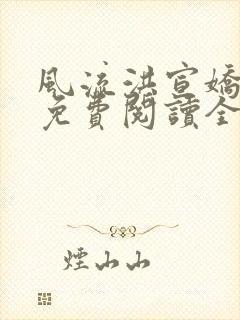 風流洪宣嬌
免費閱讀全
煙山山